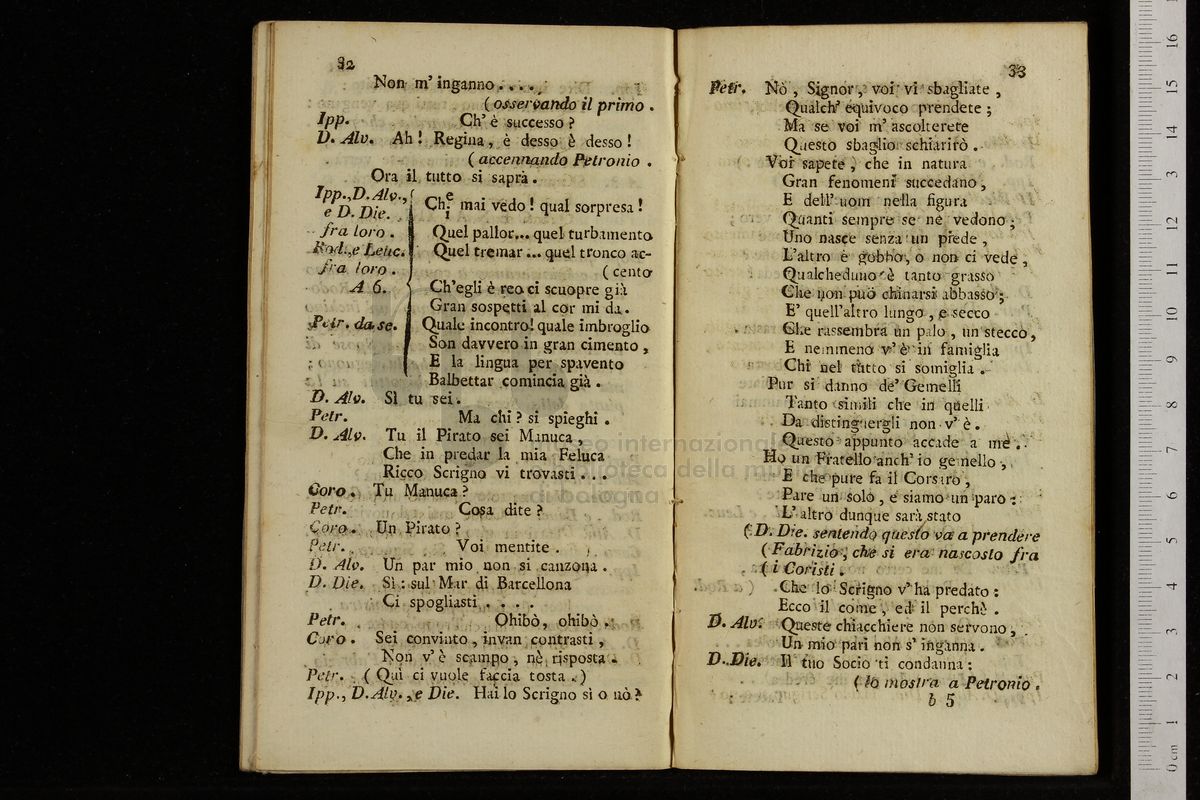 32
Non m' inganno . . . .
( osservando il primo .
Ipp. Ch' è successo ?
D. Alv. Ah ! Regina, è desso è desso !
( accennando Petronio .
Ora il tutto si saprà .
Ipp., D. Alv., e D. Die. fra loro . Che mai vedo ! qual sorpresa !
i
Quel pallor... quel turbamento
Rod., e Leuc. fra loro . Quel tremar ... quel tronco ac-
( cento
A 6. Ch'egli è reo ci scuopre già
Gran sospetti al cor mi da .
Petr. da se. Quale incontro! quale imbroglio
Son davvero in gran cimento ,
E la lingua per spavento
Balbettar comincia già .
D. Alv. Sì tu sei .
Petr. Ma chi ? si spieghi .
D. Alv. Tu il Pirato sei Manuca ,
Che in predar la mia Feluca
Ricco Scrigno vi trovasti . . .
Coro . Tu Manuca ?
Petr. Cosa dite ?
Coro . Un Pirato ?
Petr. Voi mentite .
D. Alv. Un par mio non si canzona .
D. Die. Sì : sul Mar di Barcellona
Ci spogliasti . . . .
Petr. Ohibò, ohibò .
Coro . Sei convinto , invan contrasti ,
Non v' è scampo , nè risposta .
Petr. ( Qui ci vuole faccia tosta . )
Ipp., D. Alv. , e Die. Hai lo Scrigno sì o nò ?
33
Petr. Nò , Signor , voi vi sbagliate ,
Qualch' equivoco prendete ;
Ma se voi m' ascolterete
Questo sbaglio schiarirò .
Voi sapete , che in natura
Gran fenomeni succedano ,
E dell' uom nella figura
Quanti sempre se ne vedono ;
Uno nasce senza un piede ,
L'altro è gobbo , o non ci vede ,
Qualcheduno è tanto grasso
Che non può chinarsi abbasso ;
E' quell'altro lungo , e secco
Che rassembra un palo , un stecco ,
E nemmeno v' è in famiglia
Chi nel tutto si somiglia .
Pur si danno de' Gemelli
Tanto simili che in quelli
Da distinguergli non v' è .
Questo appunto accade a me .
Ho un Fratello anch' io gemello ,
E che pure fa il Corsaro ,
Pare un solo , e siamo un paro :
L' altro dunque sarà stato
( D. Die. sentendo questo va a prendere
( Fabrizio , che si era nascosto fra
( i Coristi .
Che lo Scrigno v' ha predato :
Ecco il come , ed il perchè .
D. Alv. Queste chiacchiere non servono ,
Un mio pari non s' inganna .
D. Die. Il tuo Socio ti condanna :
( lo mostra a Petronio .
b 5
museo internazionale
e biblioteca della musica
di bologna
0 cm 1 2 3 4 5 6 7 8 9 10 11 12 13 14 15 16